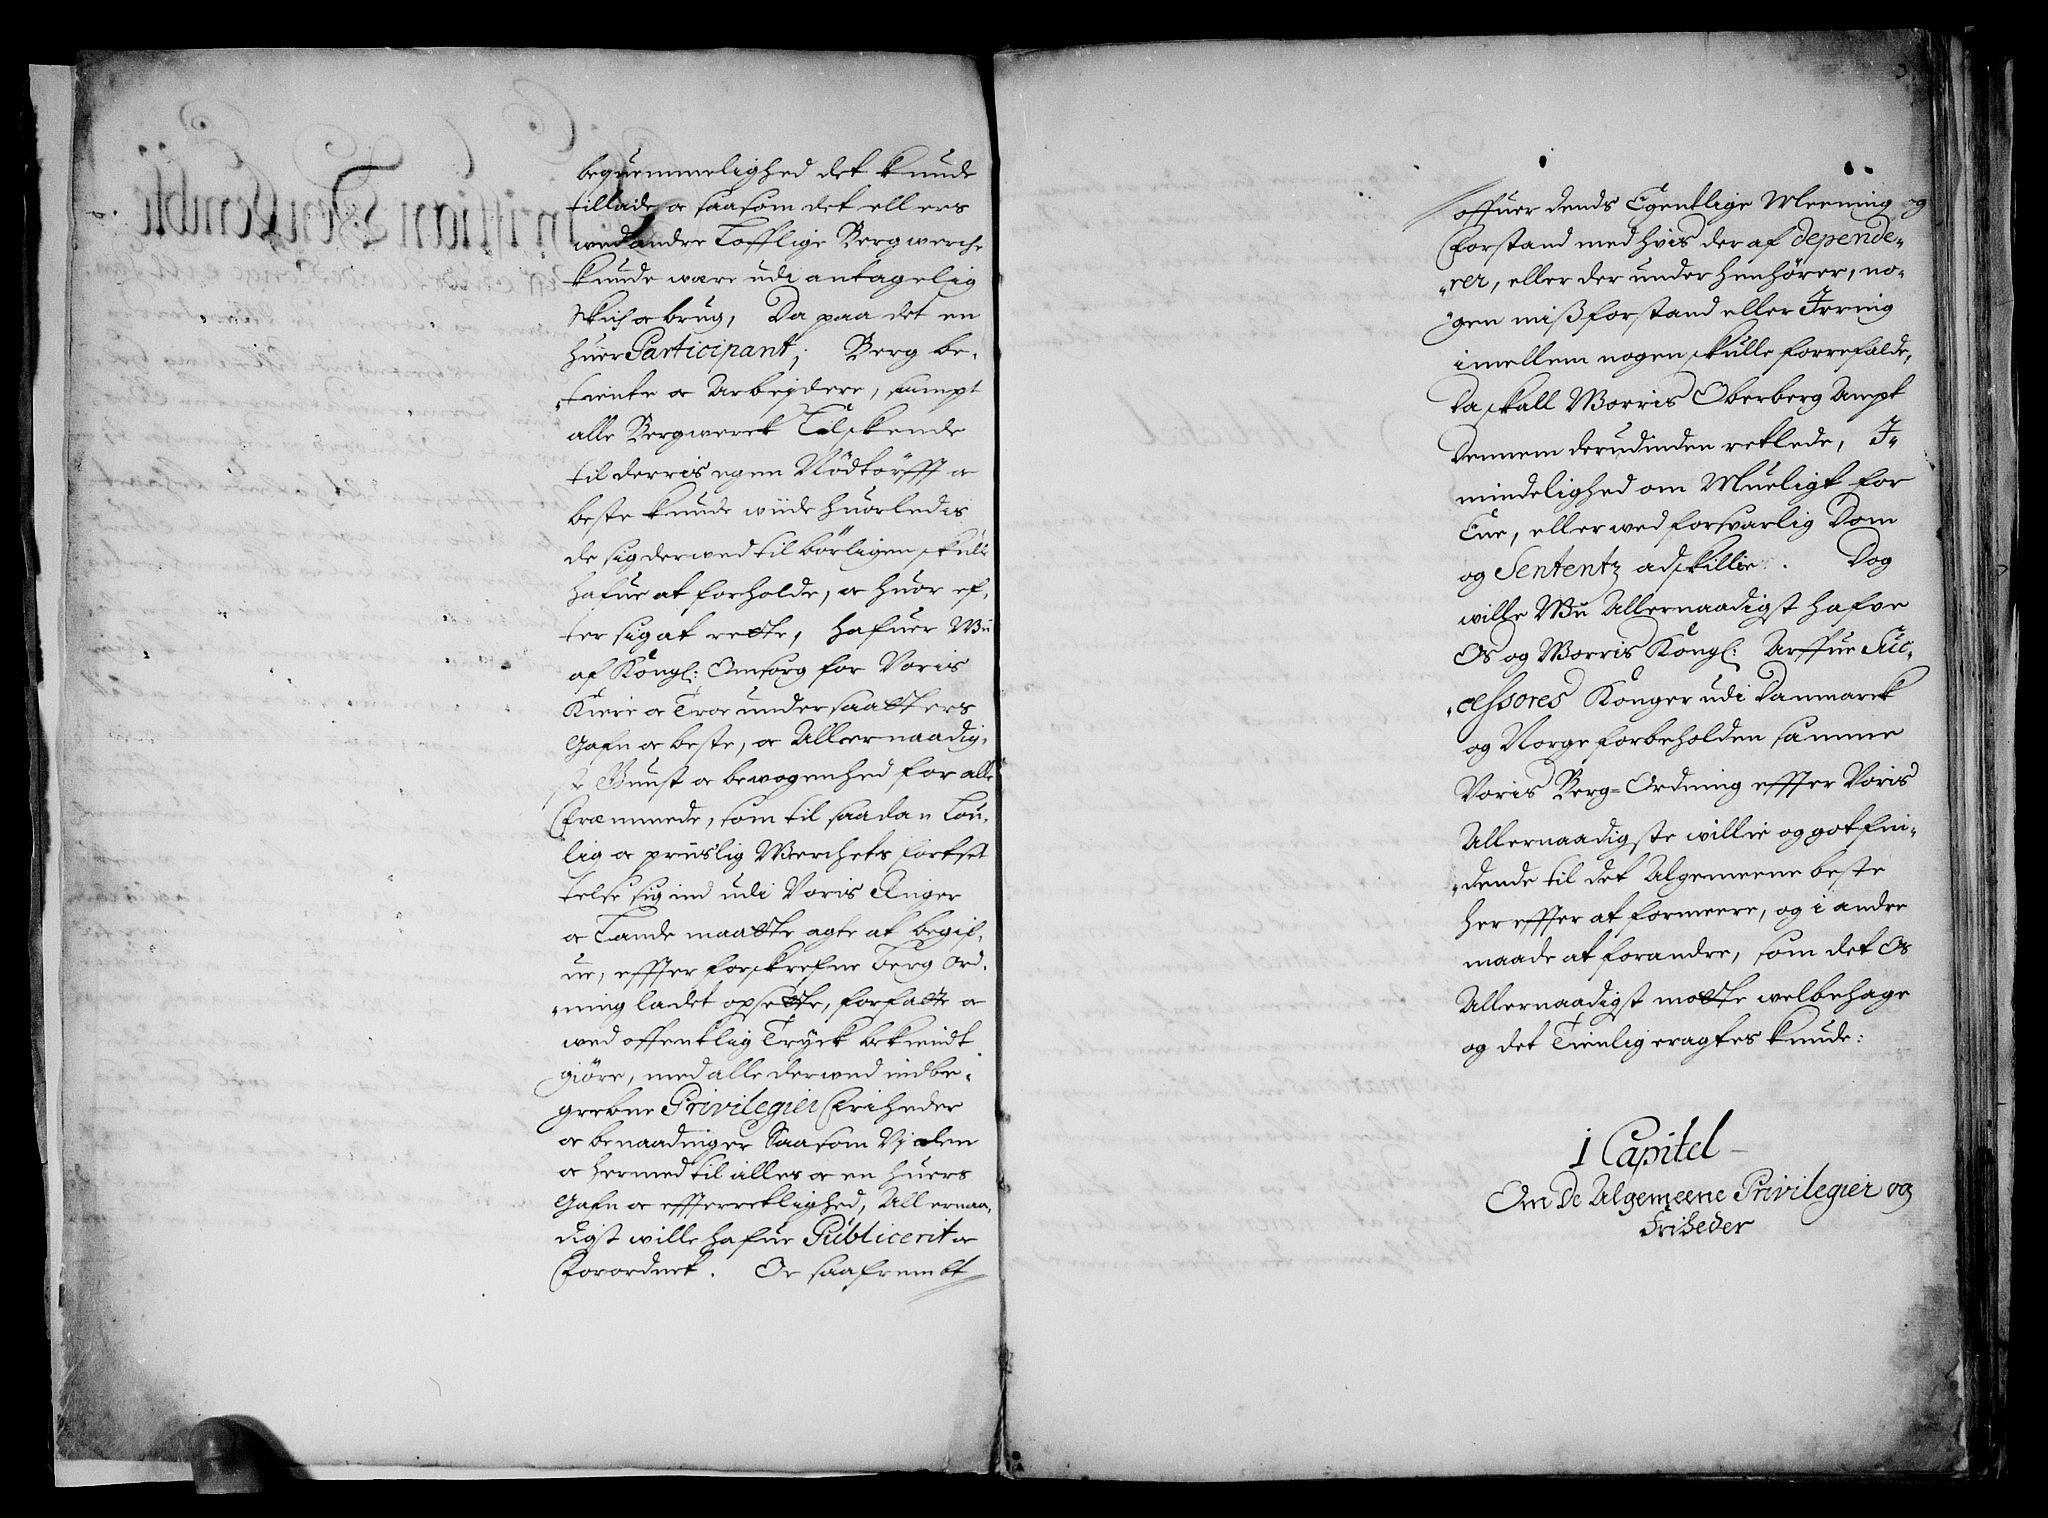 bequemmelighed det kunde
tillade oc saasom det ellers
wed andre Lofflige Bergwerch
kunde were udi antagelig
skich oc brug, Da paa det en
huer Participant, Berg be-
tiente oc Arbejdere, sampt
alle Bergwerck Elskende
til derris egen Nödtörfft oc
beste kunde wide huorledis
de sig derwed tilbörligen skulle
hafue at forholde, oc huor ef-
ter sig at rette, hafuer Wii
af Kongl: Omsorg for Voris
Kiere oc Troe undersaatters
Gafn oc beste, oc Allernaadig-
ste Gunst oc bewogenhed for alle
Fræmmede, som til saadan Lou-
lig oc priislig Werchets fortset
telse sig ind udi Voris Riger
oc Lande maatte agte at begif-
ue, effter forskrefne Berg Ord-
ning ladet opsette, forfatte oc
wed offentlig Tryck bekiendt
giöre, med alle derwed indbe-
grebne Privilegier Friheder
oc benaadinger Saasom Vj den
oc hermed til alles oc en huers
Gafn oc effterretlighed, Allernaa-
digst wille hafue Publicerit oc
Forordnet. Oc saafrembt
offuer dends Egentlige Meening og
Forstand med hvis der af depende-
rer, eller der under henhörer, no-
gen mißforstand eller Irring
imellem nogen skulle forrefalde,
Da skall Worris Oberberg Ampt
Dennem derudinden retlede, I
mindelighed om Mueligt for
Ene, eller wed forsvarlig Dom
og Sententz adskillie. Dog
wille Wii Allernaadigst hafve
Os og Worris Kongl: Arffue Suc-
cessores Konger udi Danmarck
og Norge forbeholden samme
Voris Berg-Ordning effter Voris
Allernaadigste willie og gotfin-
dende til det Algemeene beste
her effter at formeere, og i andre
maade at forandre, som det Os
Allernaadigst motte welbehage
og det Tienlig eragtes kunde:
1 Capitel
Om De Algemeene Privilegier og
Friheder